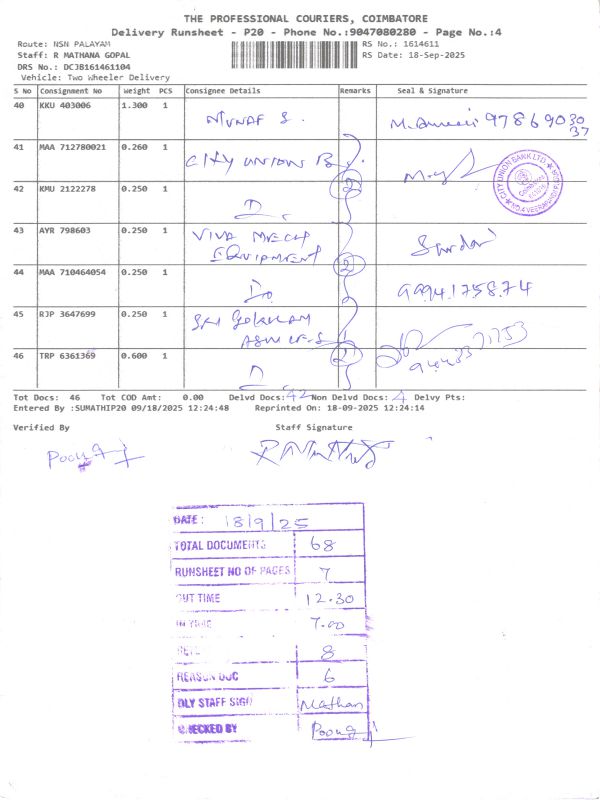 THE PROFESSIONAL COURIERS, COIMBATORE
Delivery Runsheet - P20 - Phone No.:9047080280 - Page No.:4
Route: NSN PALAYAM
RS No.: 1614611
Staff: R MATHANA GOPAL
RS Date: 18-Sep-2025
DRS No.: DCJB161461104
Vehicle: Two Wheeler Delivery
S No Consignment No Weight PCS Consignee Details Remarks Seal & Signature
40 KKU 403006 1.300 1
MUNAF S. 97869030
37
41 MAA 712780021 0.260 1
CITY UNION B
CITY UNION BANK LTD
42 KMU 2122278 0.250 1
2
D.
43 AYR 798603 0.250 1 VIVA MECH
EQUIPMENT 2
44 MAA 710464054 0.250 1
Do 9994175874
45 RJP 3647699 0.250 1 SRI GOKULAM
46 TRP 6361369 0.600 1 2
D
Tot Docs: 46 Tot COD Amt: 0.00 Delvd Docs: 42 Non Delvd Docs: 4 Delvy Pts:
Entered By :SUMATHIP20 09/18/2025 12:24:48 Reprinted On: 18-09-2025 12:24:14
Verified By Staff Signature
DATE : 18/9/25
TOTAL DOCUMENTS 68
RUNSHEET NO OF PAGES 7
OUT TIME 12.30
IN TIME 7.00
8
REASON DOC 6
DLY STAFF SIGN Mathan
CHECKED BY